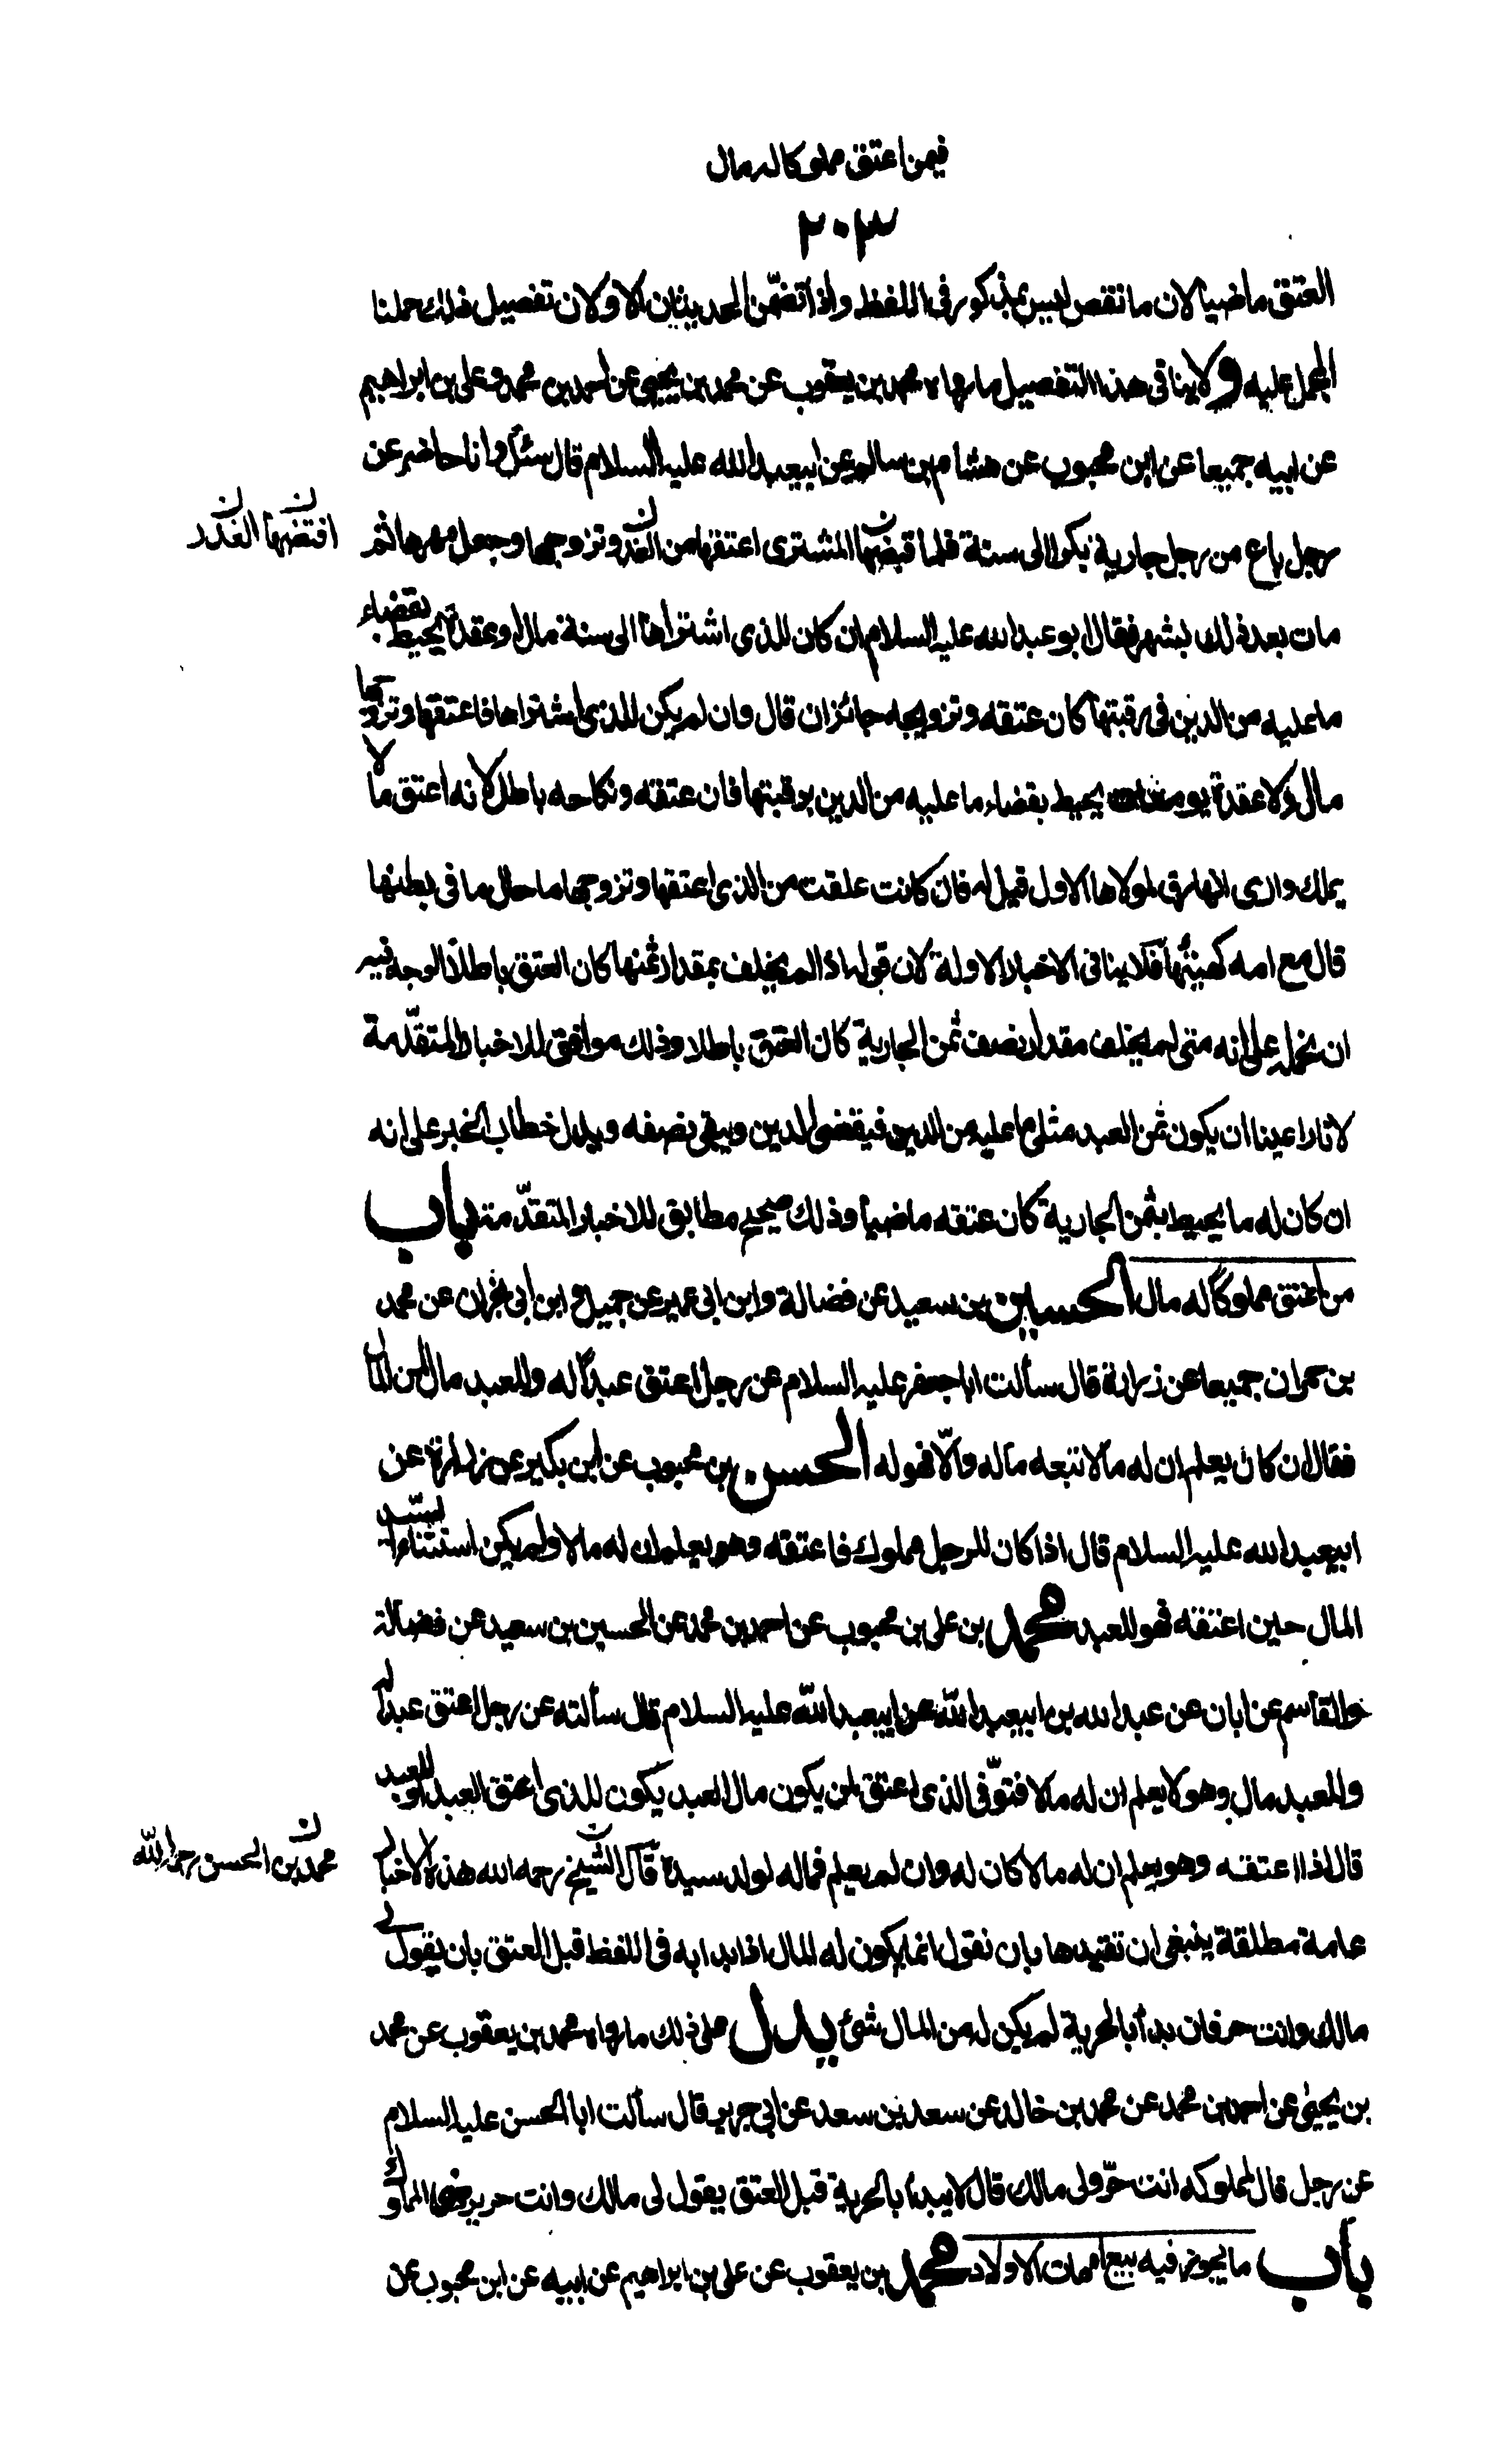 فيمن اعتق مملوكا له مال
٢٠٣
العتق ماضيا لان ما نقص ليس بمذكور في اللفظ واذا تضمّن الحديثان الاولان تفصيل ذلك حملنا
المجمل عليه ولا ينافي هذا التفصيل ما رواه محمد بن يعقوب عن محمد بن يحيى عن احمد بن محمد وعلى بن ابراهيم
عن ابيه جميعا عن ابن محبوب عن هشام بن سالم عن ابيعبد الله عليه السلام قال سئل وانا حاضر عن
رجل باع من رجل جارية بكرا الى سنة فلما قبضها المشترى اعتقها من الغد وتزوجها وجعل مهرها عتقها ثم
افتضها ن الغد ن
مات بعد ذلك بشهر فقال ابو عبد الله عليه السلام ان كان للذى اشتراها الى سنة مال او عقدة يحيط بقضاء
ما عليه من الدين في رقبتها كان عتقه وتزويجه جائزان قال وان لم يكن للذى اشتراها فاعتقها وتزوجها
مال ولا عقدة يوم مات يحيط بقضاء ما عليه من الدين برقبتها فان عتقه ونكاحه باطل لانه اعتق ما لا
يملك وارى انها رق لمولاها الاول قيل له فان كانت علقت من الذى اعتقها وتزوجها ما حال ما فى بطنها
قال مع امه كهيئتها فلا ينافى الاخبار الاولة لان قوله اذا لم يخلف بمقدار ثمنها كان العتق باطلا الوجه فيه
ان نحمله على انه متى لم يخلف مقدار نصف ثمن الجارية كان العتق باطلا وذلك موافق للاخبار المتقدّمة
لانا راعينا ان يكون ثمن العبد مثلى ما عليه من الدين فيقضى الدين ويبقى نصفه ويدل خطاب الخبر على انه
ان كان له ما يحيط بثمن الجارية كان عتقه ماضيا وذلك صحيح مطابق للاخبار المتقدّمة باب
من اعتق مملوكًا له مال الحسين بن سعيد عن فضالة وابن ابى عمير عن جميل وابن ابى نجران عن محمد
بن حمران جميعا عن زرارة قال سألت ابا جعفر عليه السلام عن رجل اعتق عبدًا له وللعبد مال لمن المال
فقال ان كان يعلم ان له مالا تبعه ماله والّا فهو له الحسن بن محبوب عن ابن بكير عن زرارة عن
ابيعبد الله عليه السلام قال اذا كان للرجل مملوك فاعتقه وهو يعلم ان له مالا ولم يكن استثناء السيّد
المال حين اعتقه فهو للعبد محمد بن على بن محبوب عن احمد بن محمد عن الحسين بن سعيد عن فضالة
والقاسم عن ابان عن عبد الله بن ابيعبد الله عن ابيعبد الله عليه السلام قال سألته عن رجل اعتق عبدًا له
وللعبد مال وهو لا يعلم ان له مالا فتوّفى الذى اعتق لمن يكون مال العبد يكون للذى اعتق العبد او للعبد
قال اذا اعتقه وهو يعلم ان له مالا كان له وان لم يعلم فماله لولد سيدة قال الشيخ رحمه الله هذه الاخبار
محمد بن الحسن رحمه الله ن
عامة مطلقة ينبغى ان نقيدها بان نقول انما يكون له المال اذا بدا به فى اللفظ قبل العتق بان يقول لى
مالك وانت حر فان بدأ بالحرية لم يكن له من المال شئ يدل على ذلك ما رواه محمد بن يعقوب عن محمد
بن يحيىٰ عن احمد بن محمد عن محمد بن خالد عن سعد بن سعد عن ابى جرير قال سألت ابا الحسن عليه السلام
عن رجل قال لمملوكه انت حرّ ولى مالك قال لا يبدأ بالحرية قبل العتق يقول لى مالك وانت حر برضى المملوك
باب ما يجوز فيه بيع امهات الاولاد محمد بن يعقوب عن على بن ابراهيم عن ابيه عن ابن محبوب عن